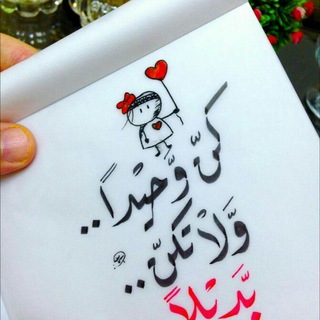 كنّ وَّحيْداً..
وَّلاْ تكنّ..
بَّديْلاً